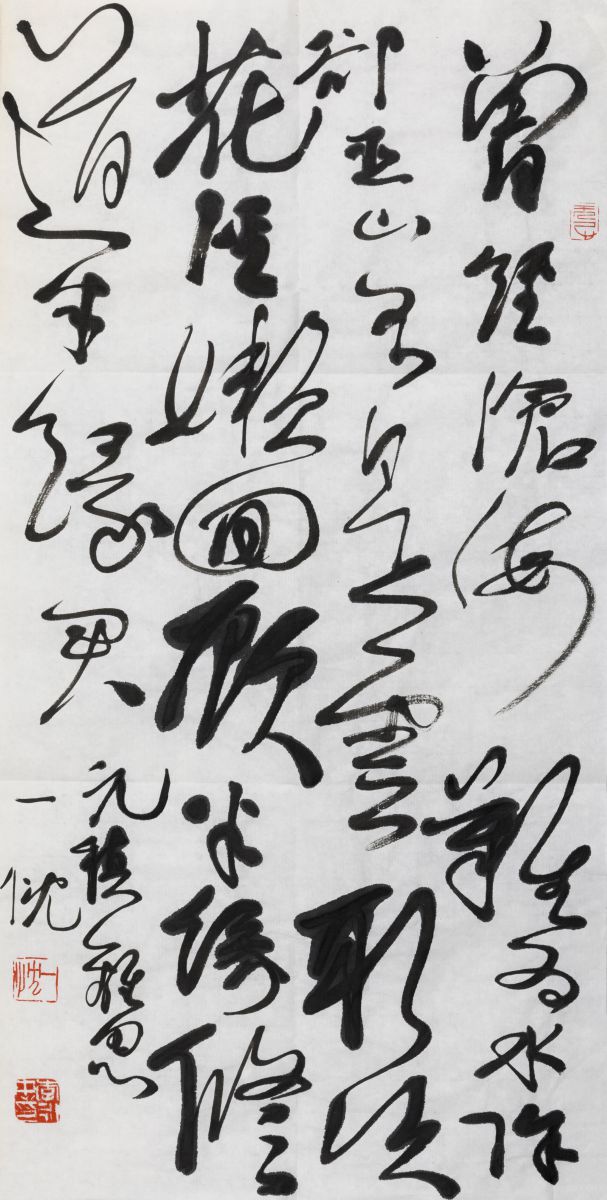 曾經滄海難為水除
卻巫山不是雲取次
花嬾回顧半緣修
道半緣君
元稹離思
一